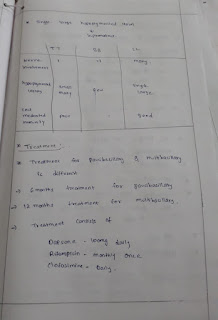 * Single large hypopigmented lesion
+
hypoaesthesia
TT BB LL
Nerve involvement 1 >1 many
Hypopigmented lesions
few single large
Cell mediated immunity - good
* Treatment :
* Treatment for paucibacillary & multibacillary
is different
→ 6 months treatment for paucibacillary
→ 12 months treatment for multibacillary.
→ Treatment consists of
Dapsone - 100mg daily
Rifampicin - monthly once
- Daily.